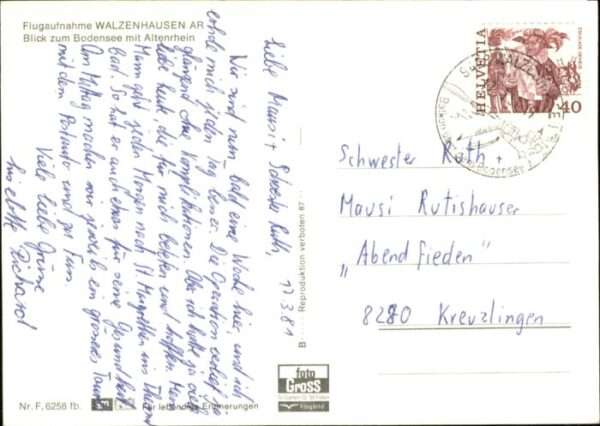 Flugaufnahme WALZENHAUSEN AR
Blick zum Bodensee mit Altenrhein
Liebe Mausi + Schwester Ruth,
17.3.81
Wir sind nun bald eine Woche hier und ich
erhole mich jeden Tag besser. Die Operation verlief ja
glänzend ohne Komplikationen. Aber ich hatte ja viele
liebe Leute, die für mich beteten und hofften. Mein
Mann geht jeden Morgen nach St. Margrethen ins
Bad. So hat er auch etwas für seine Gesundheit
Am Mittag machen wir jeweils ein grosses
mit dem Postauto und zu Fuss.
Viele liebe Grüsse
Richard
B Reproduktion verboten 87
HELVETIA
40
WALZENHAUSEN
Schwester Ruth +
Mausi Rutishauser
„Abendfrieden"
8280 Kreuzlingen
foto
GROSS
St. Gallen
Nr. F. 6256 fb.
Für lebendige Erinnerungen